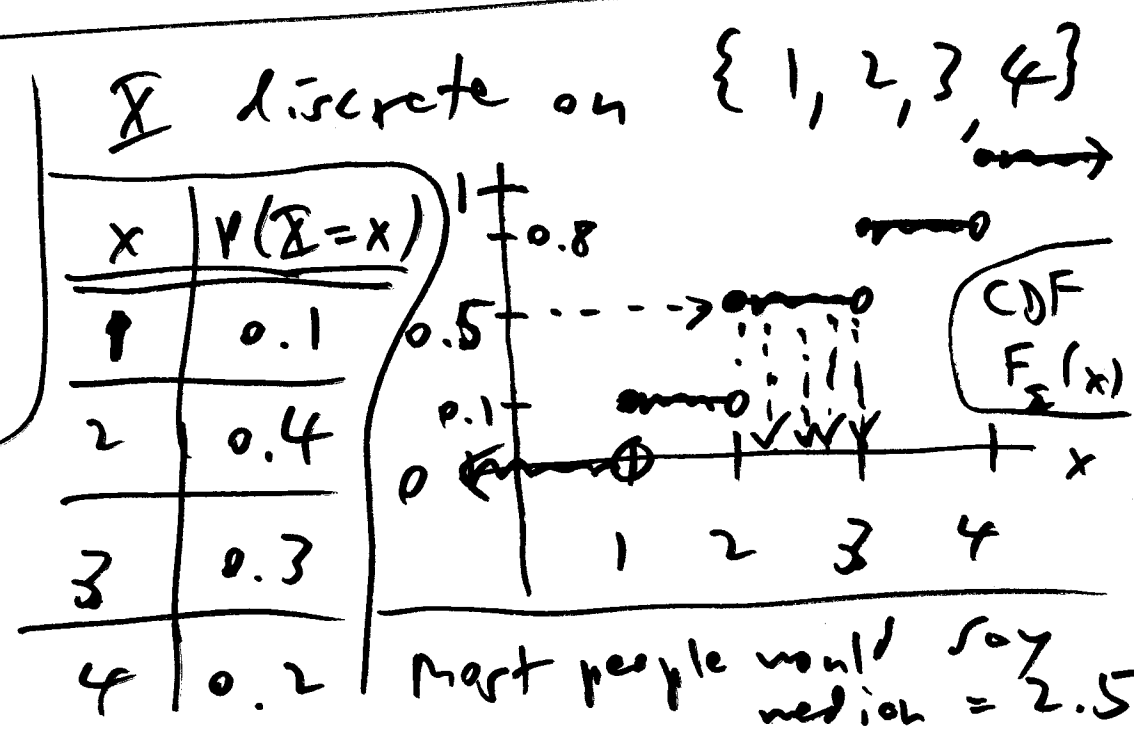 X discrete on {1, 2, 3, 4}
x P(X=x)
1 0.1
2 0.4
3 0.3
4 0.2
1
0.8
0.5
0.1
0
1 2 3 4 x
CDF
F_X(x)
Most people would say
median = 2.5